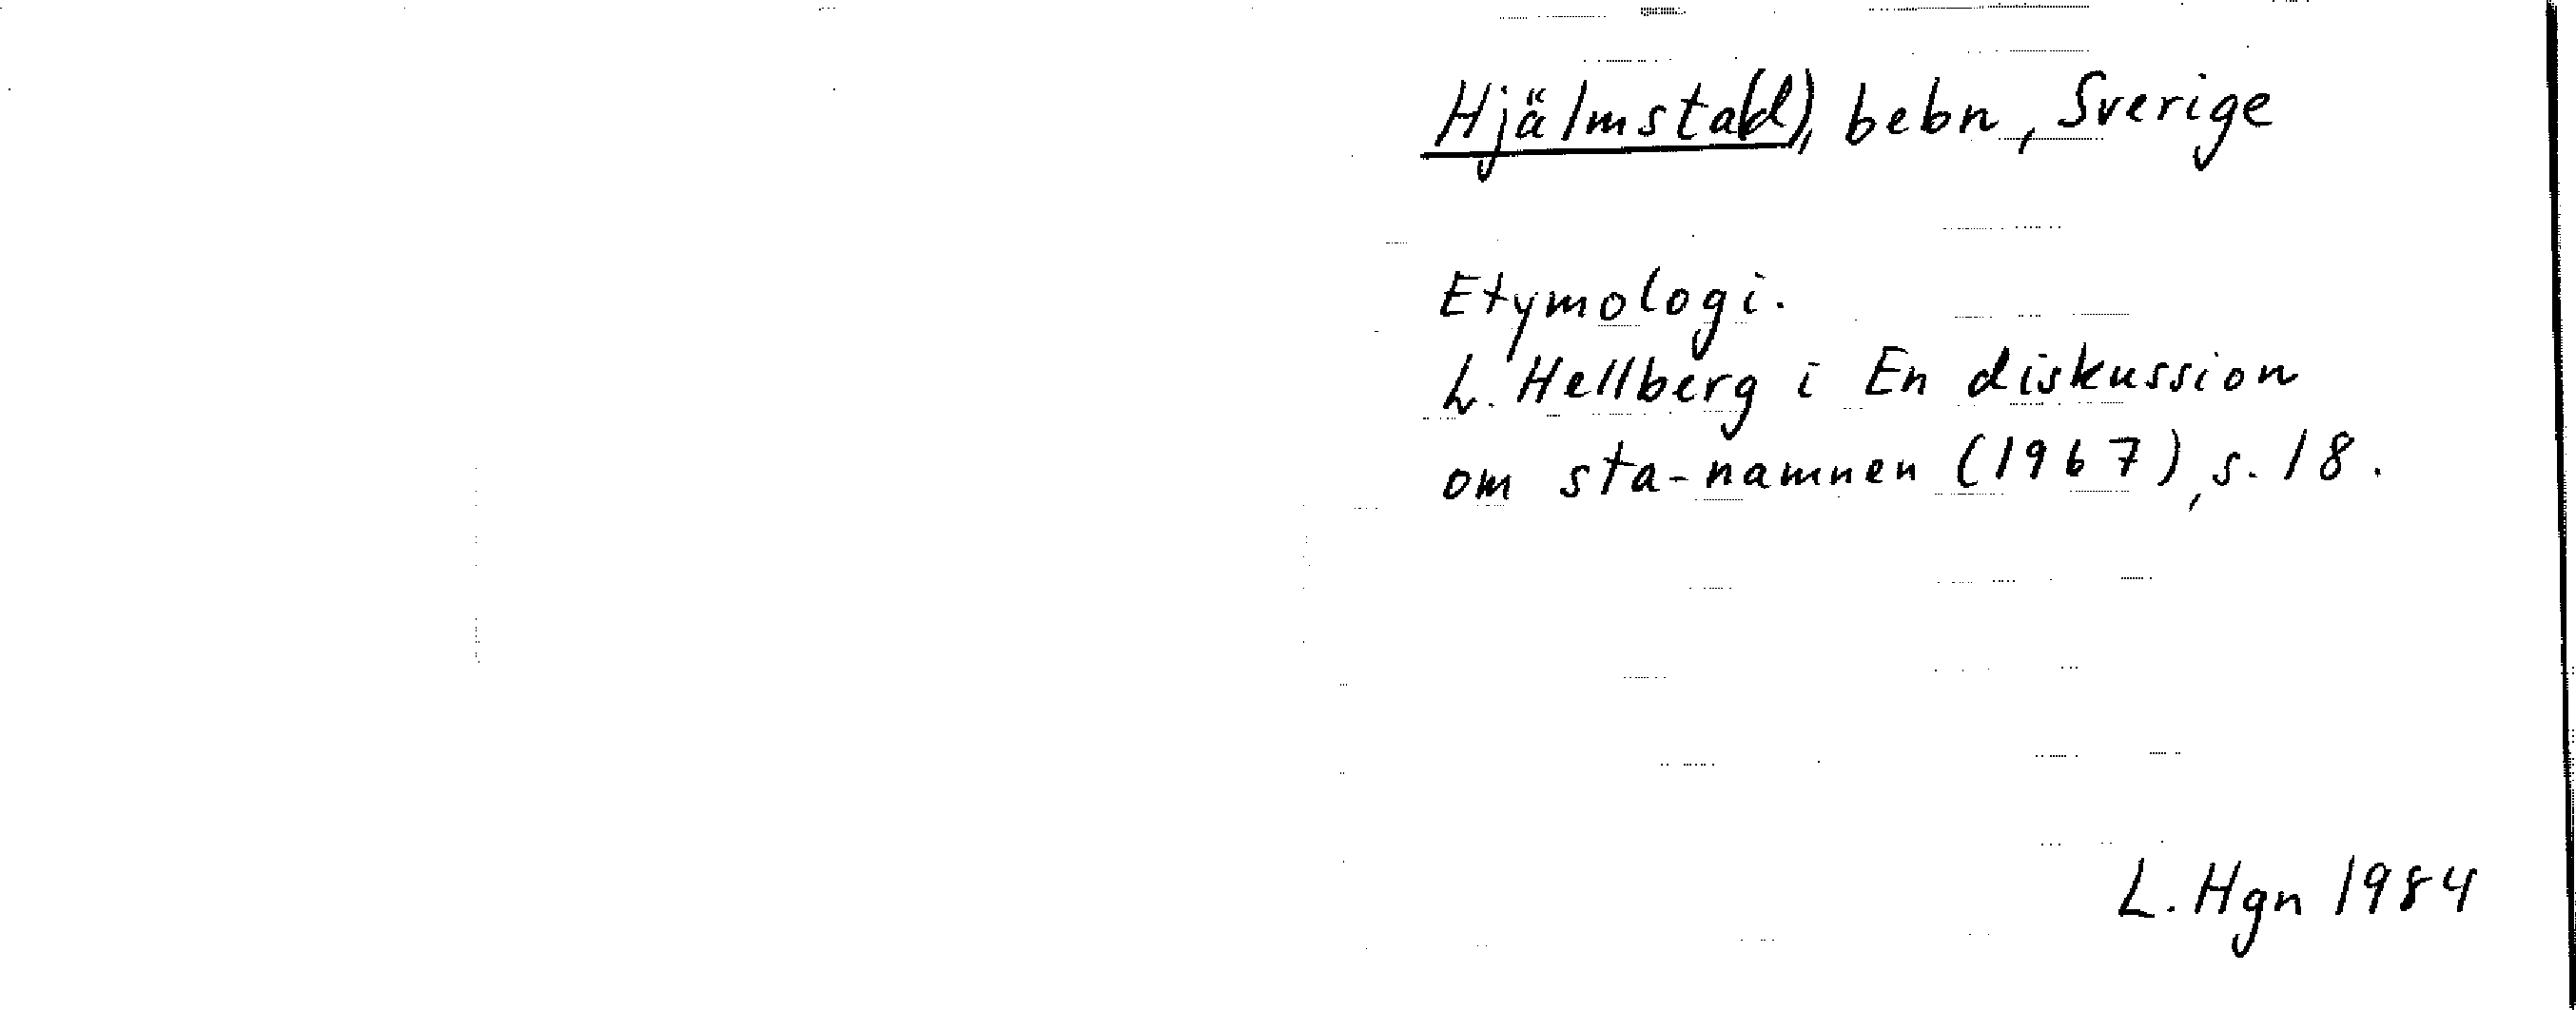 Hjälmsta(d), bebn, Sverige
Etymologi.
L. Hellberg i En diskussion
om sta-namnen (1967), s. 18.
L. Hgn 1984